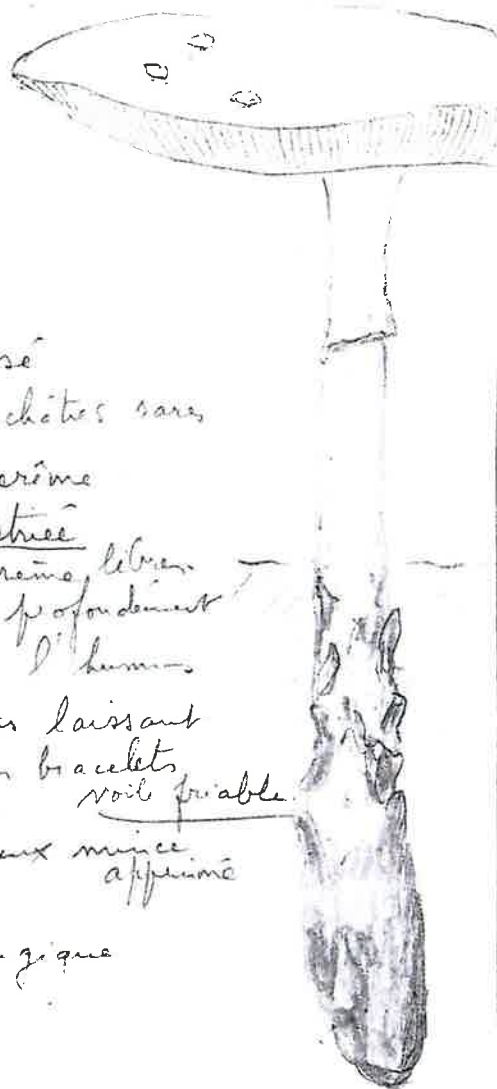 sé
rares
crème
striée
crème, libres
profondément
l'humus
laissant
bracelets
voile friable
mince
apprimé
gique